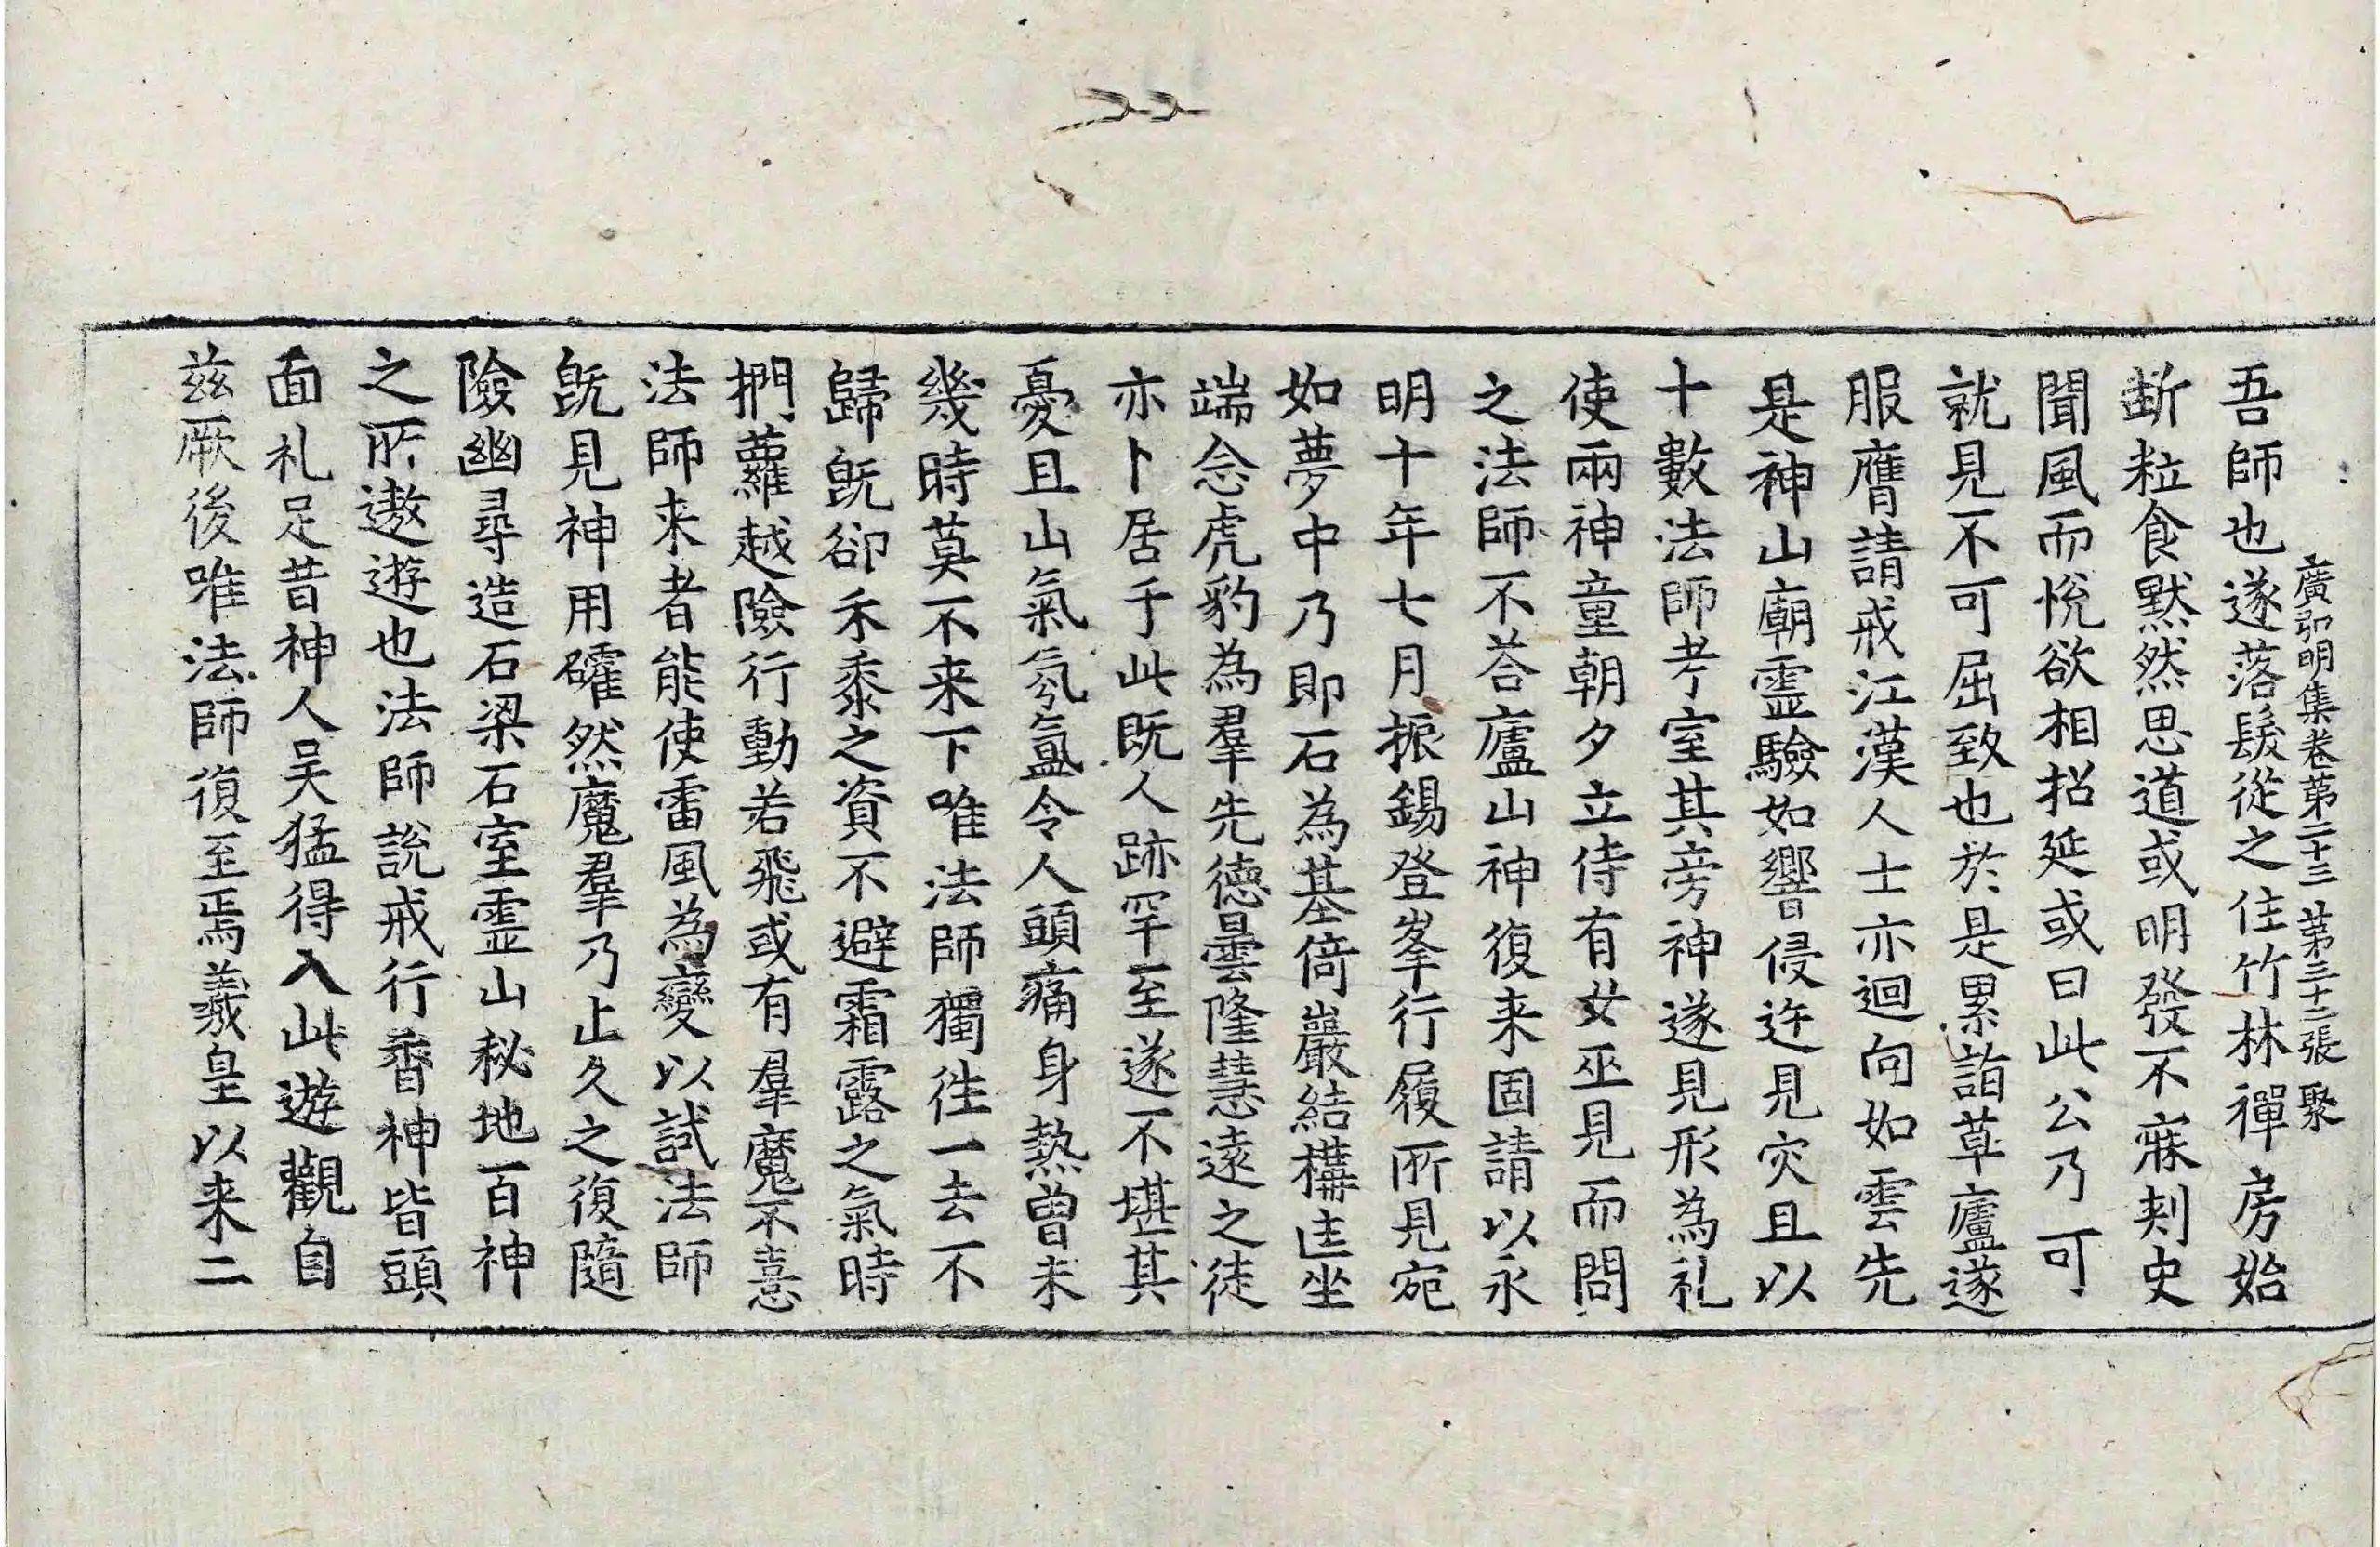 廣弘明集卷第二十三 第三十二張 聚
吾師也遂落髮從之住竹林禪房始
斷粒食默然思道或明發不寐刾史
聞風而悅欲相招延或曰此公乃可
就見不可屈致也於是累詣草廬遂
服膺請戒江漢人士亦迴向如雲先
是神山廟霊驗如響侵迕見灾且以
十數法師考室其旁神遂見形為礼
使兩神童朝夕立侍有女巫見而問
之法師不荅廬山神復来固請以永
明十年七月振錫登峯行履所見宛
如夢中乃即石為基倚巖結構匡坐
端念虎豹為羣先德曇隆慧遠之徒
亦卜居于此既人跡罕至遂不堪其
憂且山氣氛氳令人頭痛身熱曾未
幾時莫不来下唯法師獨徃一去不
歸旣卻禾黍之資不避霜露之氣時
捫蘿越險行動若飛或有羣魔不憙
法師来者能使雷風為變以試法師
旣見神用確然魔羣乃止久之復隨
險幽尋造石梁石室霊山秘地百神
之所遨遊也法師說戒行香神皆頭
面礼足昔神人吴猛得入此遊觀自
兹厥後唯法師復至焉羲皇以来二